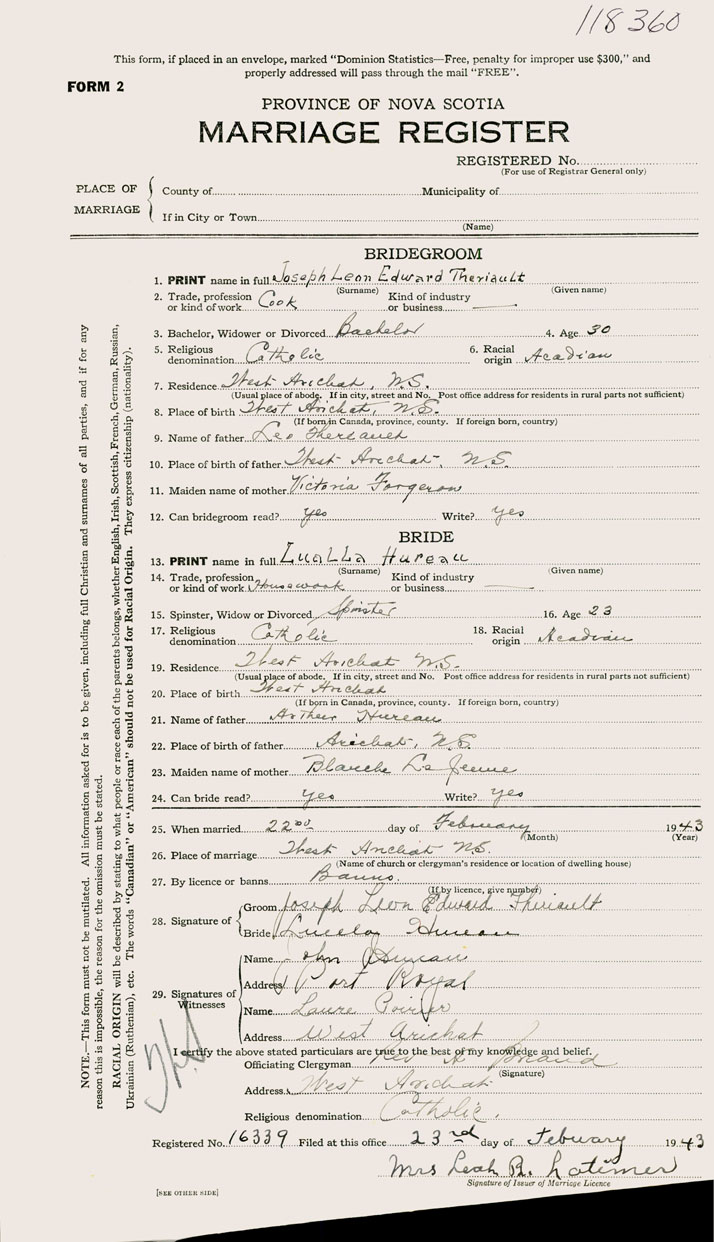 118360
This form, if placed in an envelope, marked "Dominion Statistics—Free, penalty for improper use $300," and
properly addressed will pass through the mail "FREE".
FORM 2
PROVINCE OF NOVA SCOTIA
MARRIAGE REGISTER
REGISTERED No.
(For use of Registrar General only)
PLACE OF MARRIAGE
County of Municipality of
If in City or Town
(Name)
NOTE.—This form must not be mutilated. All information asked for is to be given, including full Christian and surnames of all parties, and if for any
reason this is impossible, the reason for the omission must be stated.
RACIAL ORIGIN will be described by stating to what people or race each of the parents belongs, whether English, Irish, Scottish, French, German, Russian,
Ukrainian (Ruthenian), etc. The words "Canadian" or "American" should not be used for Racial Origin. They express citizenship (nationality).
BRIDEGROOM
1. PRINT name in full Joseph Leon Edward Theriault
(Surname) (Given name)
2. Trade, profession or kind of work Cook Kind of industry or business —
3. Bachelor, Widower or Divorced Bachelor 4. Age 30
5. Religious denomination Catholic 6. Racial origin Acadian
7. Residence West Arichat, N.S.
(Usual place of abode. If in city, street and No. Post office address for residents in rural parts not sufficient)
8. Place of birth West Arichat, N.S.
(If born in Canada, province, county. If foreign born, country)
9. Name of father Leo Theriault
10. Place of birth of father West Arichat, N.S.
11. Maiden name of mother Victoria Forgeron
12. Can bridegroom read? yes Write? yes
BRIDE
13. PRINT name in full LuaLLa Hureau
(Surname) (Given name)
14. Trade, profession or kind of work Housework Kind of industry or business —
15. Spinster, Widow or Divorced Spinster 16. Age 23
17. Religious denomination Catholic 18. Racial origin Acadian
19. Residence West Arichat N.S.
(Usual place of abode. If in city, street and No. Post office address for residents in rural parts not sufficient)
20. Place of birth West Arichat
(If born in Canada, province, county. If foreign born, country)
21. Name of father Arthur Hureau
22. Place of birth of father Arichat, N.S.
23. Maiden name of mother Blanche LeJeune
24. Can bride read? yes Write? yes
25. When married 22nd day of February 1943
(Month) (Year)
26. Place of marriage West Arichat N.S.
(Name of church or clergyman's residence or location of dwelling house)
27. By licence or banns Banns.
(If by licence, give number)
28. Signature of
Groom Joseph Leon Edward Theriault
Bride Hureau
29. Signatures of Witnesses
Name John
Address Port Royal
Name Laure Poirier
Address West Arichat
I certify the above stated particulars are true to the best of my knowledge and belief.
Officiating Clergyman Rev A Briand
(Signature)
Address West Arichat
Religious denomination Catholic.
Registered No. 16339 Filed at this office 23rd day of Febuary 1943
Mrs Leah R. Latimer
Signature of Issuer of Marriage Licence
[SEE OTHER SIDE]